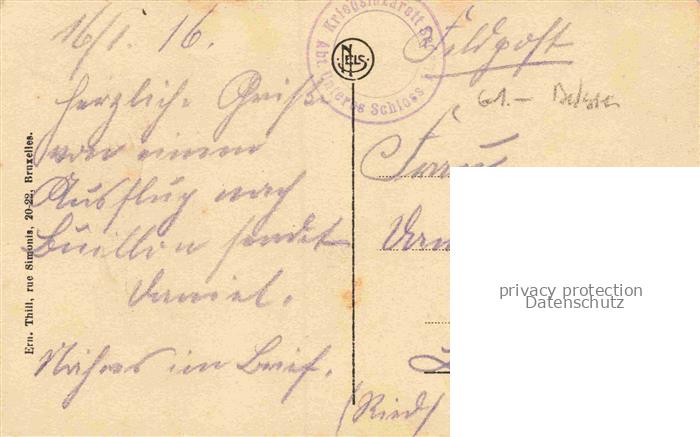 16/1. 16.
Herzliche Grüße
von einem
Ausflug nach
Buillon sendet
Daniel.
Nähres im Brief.
Ern. Thill, rue Simonis, 20-22, Bruxelles.
NELS
Kriegslazarett
Abt. Unteres Schloss
Feldpost
61.-
Frau
(Ried)
privacy protection
Datenschutz